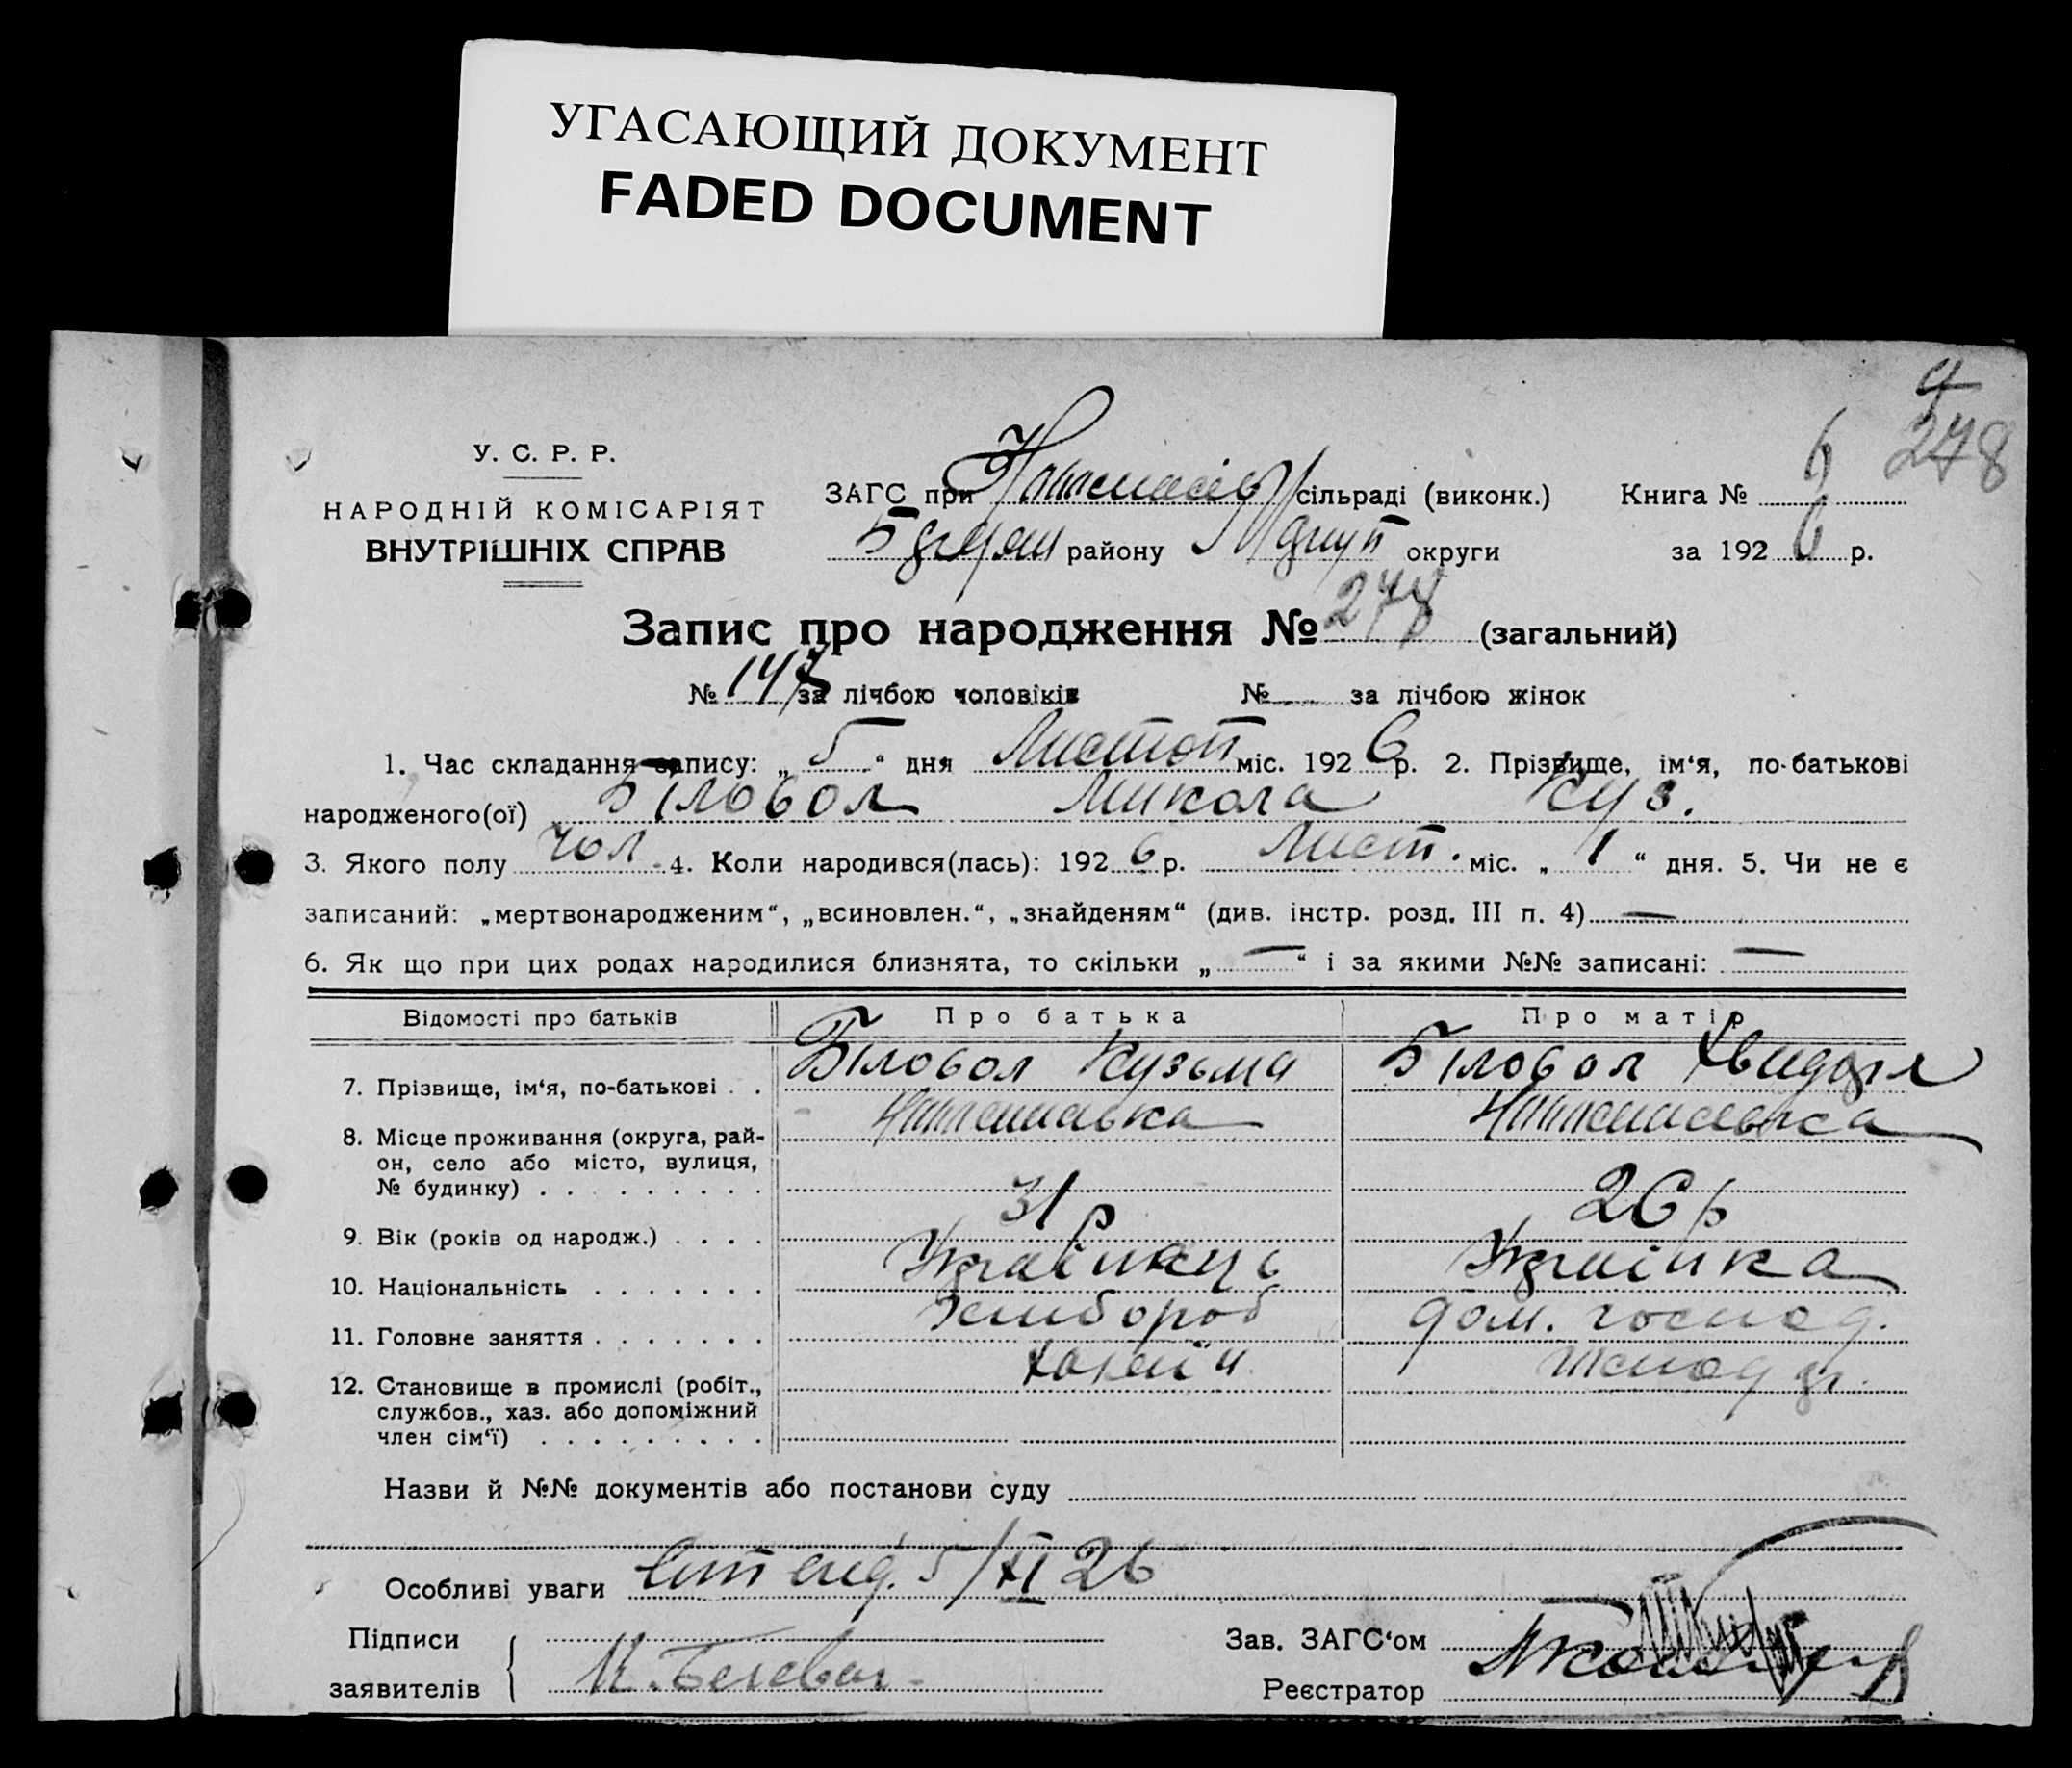 УГАСАЮЩИЙ ДОКУМЕНТ
FADED DOCUMENT
9
278
У. С. Р. Р.
НАРОДНІЙ КОМІСАРІЯТ
ВНУТРІШНІХ СПРАВ
ЗАГС при сільраді (виконк.) Книга № 6
району округи за 1926 р.
Запис про народження № 278 (загальний)
№ 147 за лічбою чоловіків № за лічбою жінок
1. Час складання запису: „ 5 “ дня Листоп міс. 1926 р. 2. Прізвище, ім‘я, по-батькові
народженого(ої) Біловол Микола Куз.
3. Якого полу чол. 4. Коли народився(лась): 1926 р. Лист. міс. „ 1 “ дня. 5. Чи не є
записаний: „мертвонародженим“, „всиновлен.“, „знайденям“ (див. інстр. розд. III п. 4) —
6. Як що при цих родах народилися близнята, то скільки „ — “ і за якими №№ записані: —
Відомості про батьків Про батька Про матір
7. Прізвище, ім‘я, по-батькові . . Біловол Кузьма Біловол Хвидоря
8. Місце проживання (округа, рай-
он, село або місто, вулиця,
№ будинку) . . . . . . . . .
9. Вік (років од народж.) . . . . 31 р 26 р
10. Національність . . . . . . . Українець Українка
11. Головне заняття . . . . . . . Хлибороб дом. господ.
12. Становище в промислі (робіт.,
службов., хаз. або допоміжний
член сім‘ї) . . . . . . . . .
Назви й №№ документів або постанови суду
Особливі уваги 5/XI 26
Підписи
заявителів
Зав. ЗАГС‘ом
Реєстратор